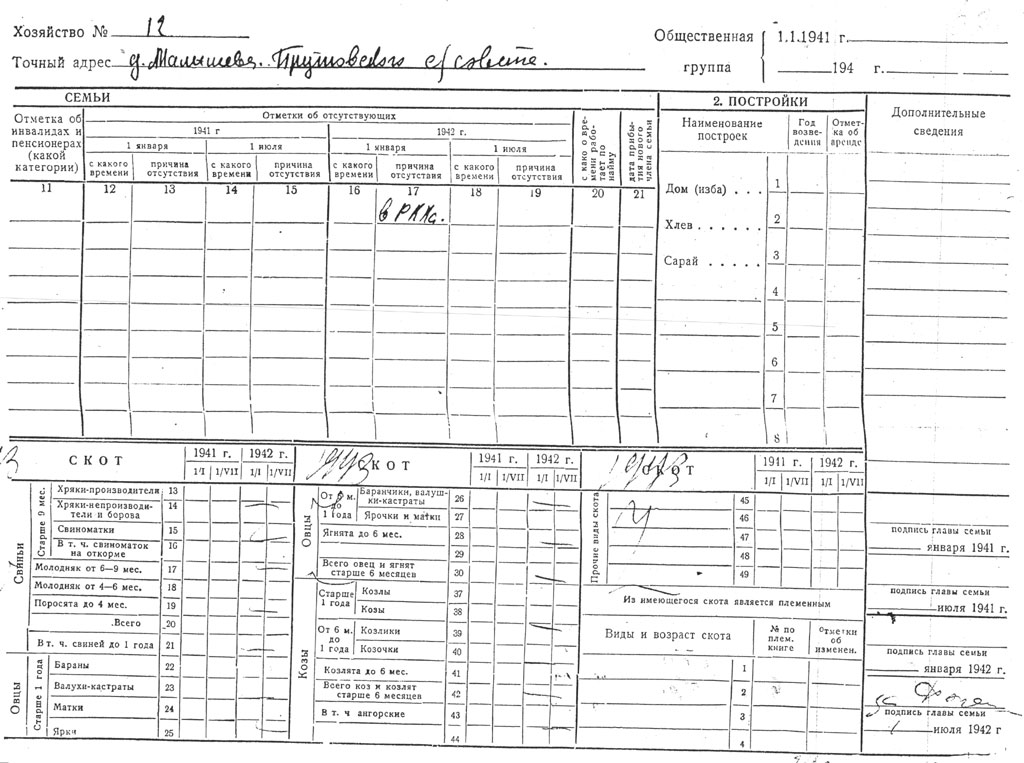 Хозяйство № 12
Общественная группа { 1.1.1941 г.
194 г.
Точный адрес д. Малышева. Прутовского с/совета.
СЕМЬИ
Отметка об инвалидах и пенсионерах (какой категории)
Отметки об отсутствующих
1941 г
1942 г.
1 января
1 июля
1 января
1 июля
с какого времени
причина отсутствия
с какого времени
причина отсутствия
с какого времени
причина отсутствия
с какого времени
причина отсутствия
с како о времени работает по найму
дата прибытия нового члена семьи
11 12 13 14 15 16 17 18 19 20 21
в РККа.
2. ПОСТРОЙКИ
Наименование построек
Год возведения
Отметка об аренде
Дом (изба) . . . 1
Хлев . . . . . . 2
Сарай . . . . . 3
4
5
6
7
8
Дополнительные сведения
СКОТ
1941 г. 1942 г.
1/I 1/VII 1/I 1/VII
Свиньи
Старше 9 мес.
Хряки-производители 13
Хряки-непроизводители и борова 14
Свиноматки 15
В т. ч. свиноматок на откорме 16
Молодняк от 6—9 мес. 17
Молодняк от 4—6 мес. 18
Поросята до 4 мес. 19
Всего 20
В т. ч. свиней до 1 года 21
Овцы
Старше 1 года
Бараны 22
Валухи-кастраты 23
Матки 24
Ярки 25
1943
СКОТ
1941 г. 1942 г.
1/I 1/VII 1/I 1/VII
Овцы
От 6 м. до 1 года
Баранчики, валушки-кастраты 26
Ярочки и матки 27
Ягнята до 6 мес. 28
29
Всего овец и ягнят старше 6 месяцев 30
Козы
Старше 1 года
Козлы 37
Козы 38
От 6 м. до 1 года
Козлики 39
Козочки 40
Козлята до 6 мес. 41
Всего коз и козлят старше 6 месяцев 42
В т. ч ангорские 43
44
1943
СКОТ
1941 г. 1942 г.
1/I 1/VII 1/I 1/VII
Прочие виды скота
45
46
47
48
49
Из имеющегося скота является племенным
Виды и возраст скота
№ по плем. книге
Отметки об изменен.
1
2
3
4
подпись главы семьи
января 1941 г.
подпись главы семьи
июля 1941 г.
подпись главы семьи
января 1942 г.
подпись главы семьи
июля 1942 г